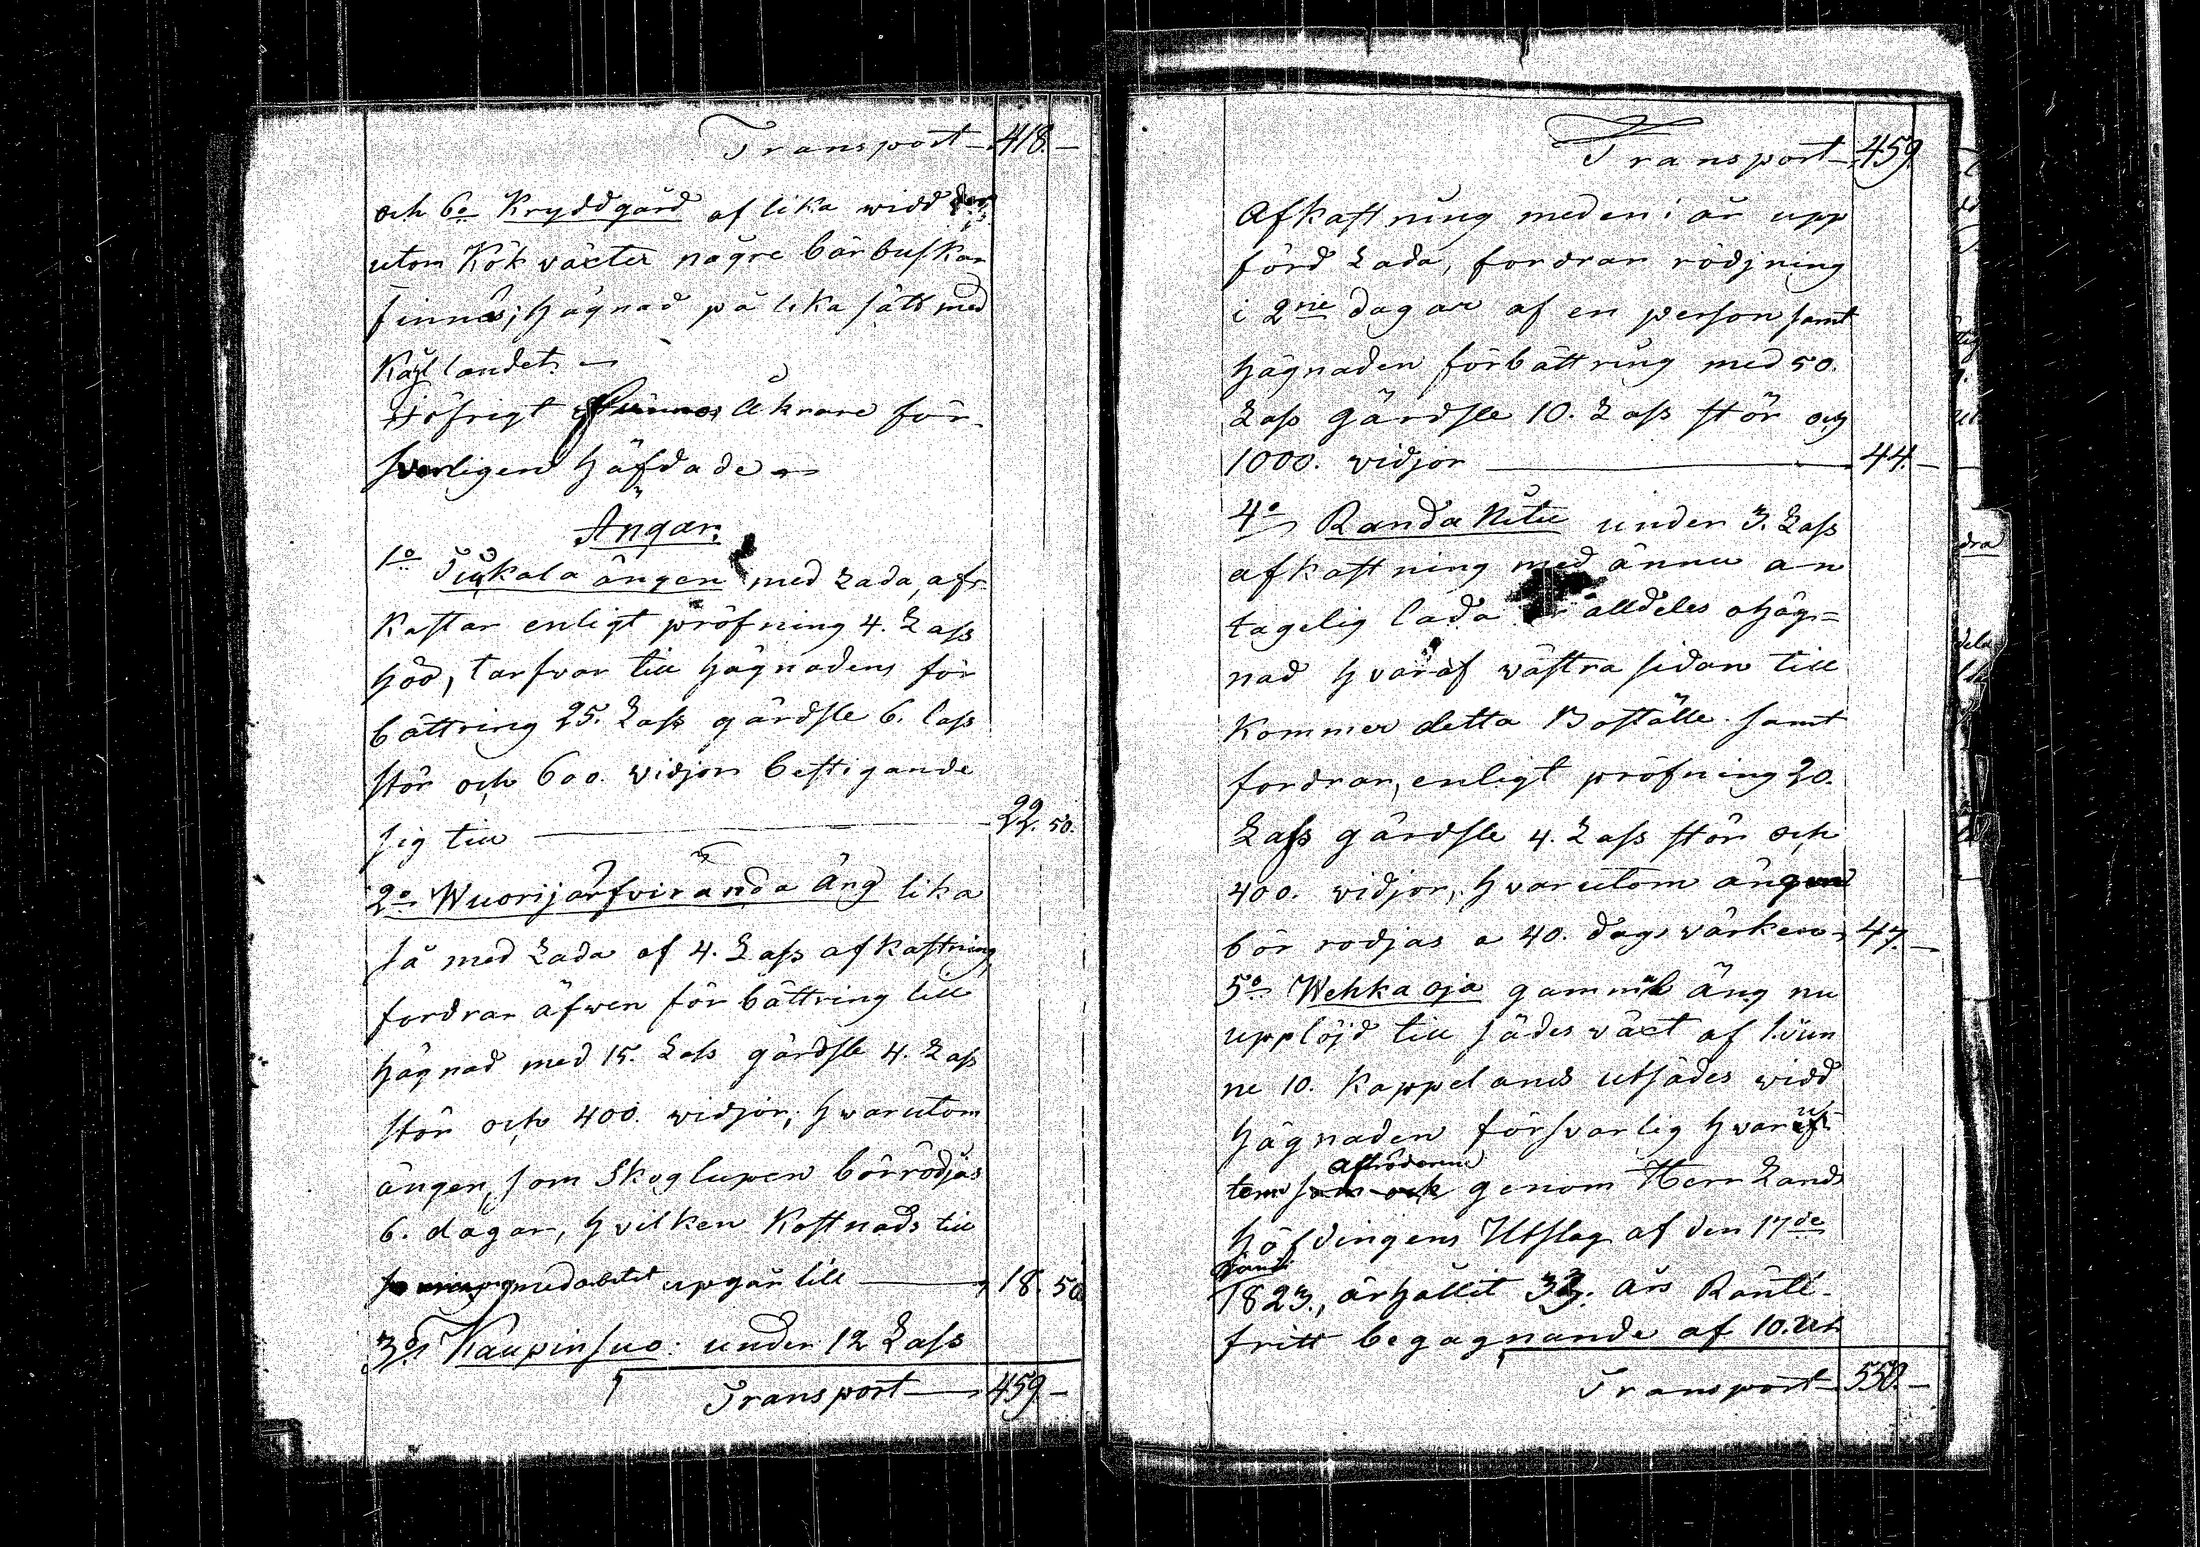 Transport 418. –
och 6o Kryddgård af lika widd der
utom Kök växter någre bärbuskar
finnas; hägnad på lika sätt med
Kåhl landet. –
Höfrigt Åkrare för-
svarligen häfdade –
Ängar.
1o Tiukala ängen med Lada, af-
kastar enligt pröfning 4. Lass
höö, tarfvar till hägnadens för
bättring 25. Lass gärdsle 6. lass
stör och 600. vidjor bestigande
sig till 22. 50.
2o Wuorijärfviranda äng lika
så med Lada af 4. Lass afkastning,
fordrar äfwen förbättring till
hägnad med 15. Lass gärdsle 4. Lass
stör och 400. vidjor, hwarutom
ängen, som Skoglupen bör rödjas
6. dagar, hvilken Kostnads till
medarbetet upgår till 18. 50
3o Kaupinsuo. under 12 Lass
Transport 459. –
Transport 459.
Afkastning med en i år upp
förd Lada, fordrar rödjning
i 2ne dagar af en person samt
hägnaden förbättring med 50.
Lass gärdsle 10. Lass stör och
1000. vidjor 44. –
4o Randa Nitu under 3. Lass
afkastning med ännu an
tagelig lada är alldeles ohäg=
nad hvaraf västra sidan till
kommer detta Boställe samt
fordrar, enligt pröfning 20.
Lass gärdsle 4. Lass stör och
400. vidjor, hvarutom ängen
bör rödjas a 40. dagsvärken 47. –
5o Wehka oja gammal äng nu
upplöjd till sädesväxt af 1. Tun
ne 10. Kappelands utsädes widd
hägnaden försvarlig hwar
tem Afträdarne genom Herr Lands
höfdingens Utslag af den 17de
1823., ärhållit års Ränte-
fritt begagnande af 10.
Transport 550. –